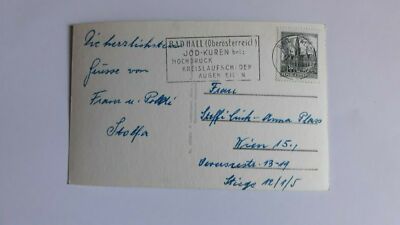 BAD HALL (Oberösterreich)
JOD-KUREN bei:
HOCHDRUCK
KREISLAUFSCH. DER
AUGEN
Die herzlichsten
Grüsse von
Franz u.
Stolfa
Frau
Steffi - Anna Plass
Wien 15.,
13-19
Stiege 12/1/5